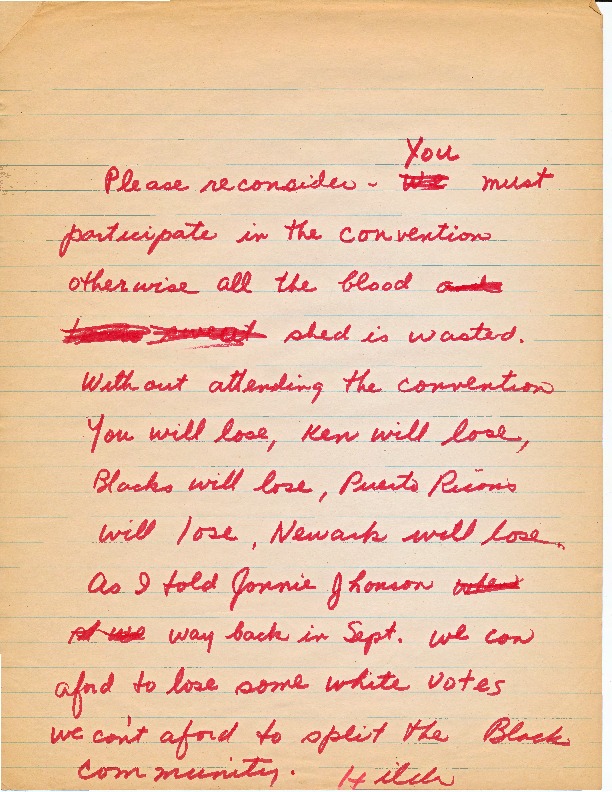 You
Please reconsider - we must
participate in the convention
otherwise all the blood and
tears sweat shed is wasted.
Without attending the convention
You will lose, Ken will lose,
Blacks will lose, Puerto Ricans
will lose, Newark will lose.
As I told Jonnie Jhonson when
way back in Sept. we can
aford to lose some white votes
we can't aford to split the Black
community. Hilda